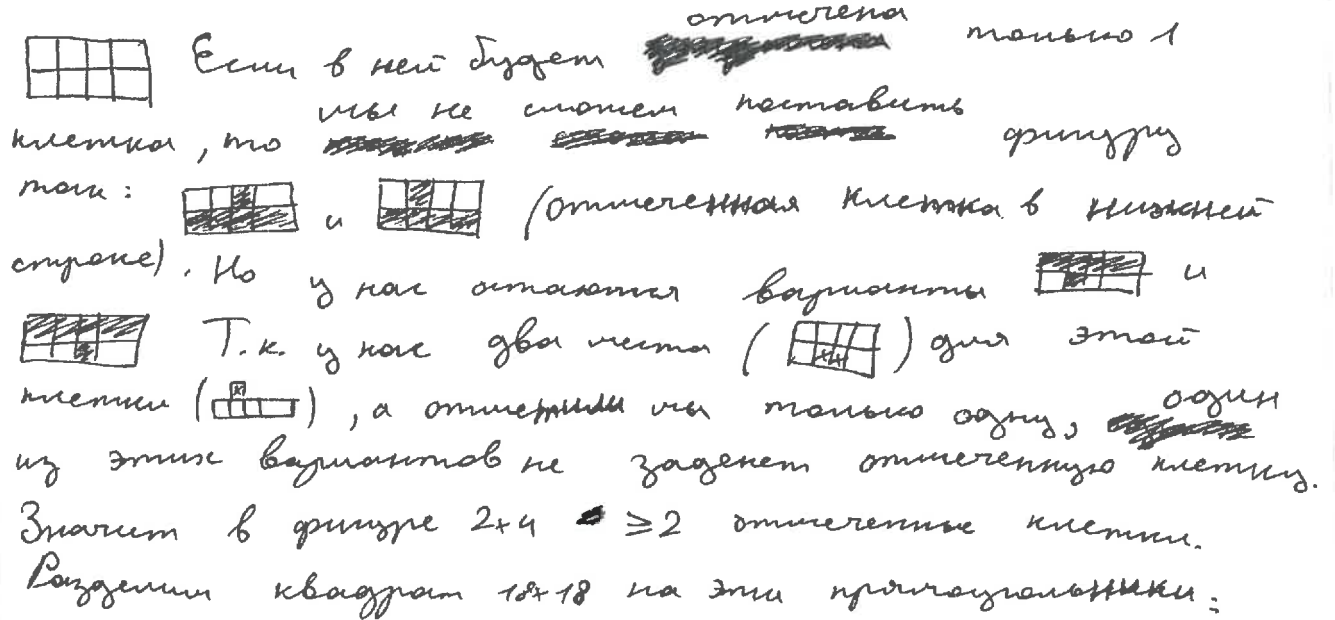 Если в ней будет отмечена только 1
клетка, то мы не сможем поставить фигуру
так: и (отмеченная клетка в нижней
строке). Но у нас остаются варианты и
Т.к. у нас два места ( ) для этой
клетки ( ), а отметили мы только одну, один
из этих вариантов не заденет отмеченную клетку.
Значит в фигуре 2×4 ≥2 отмеченные клетки.
Разделим квадрат 18×18 на эти прямоугольники: